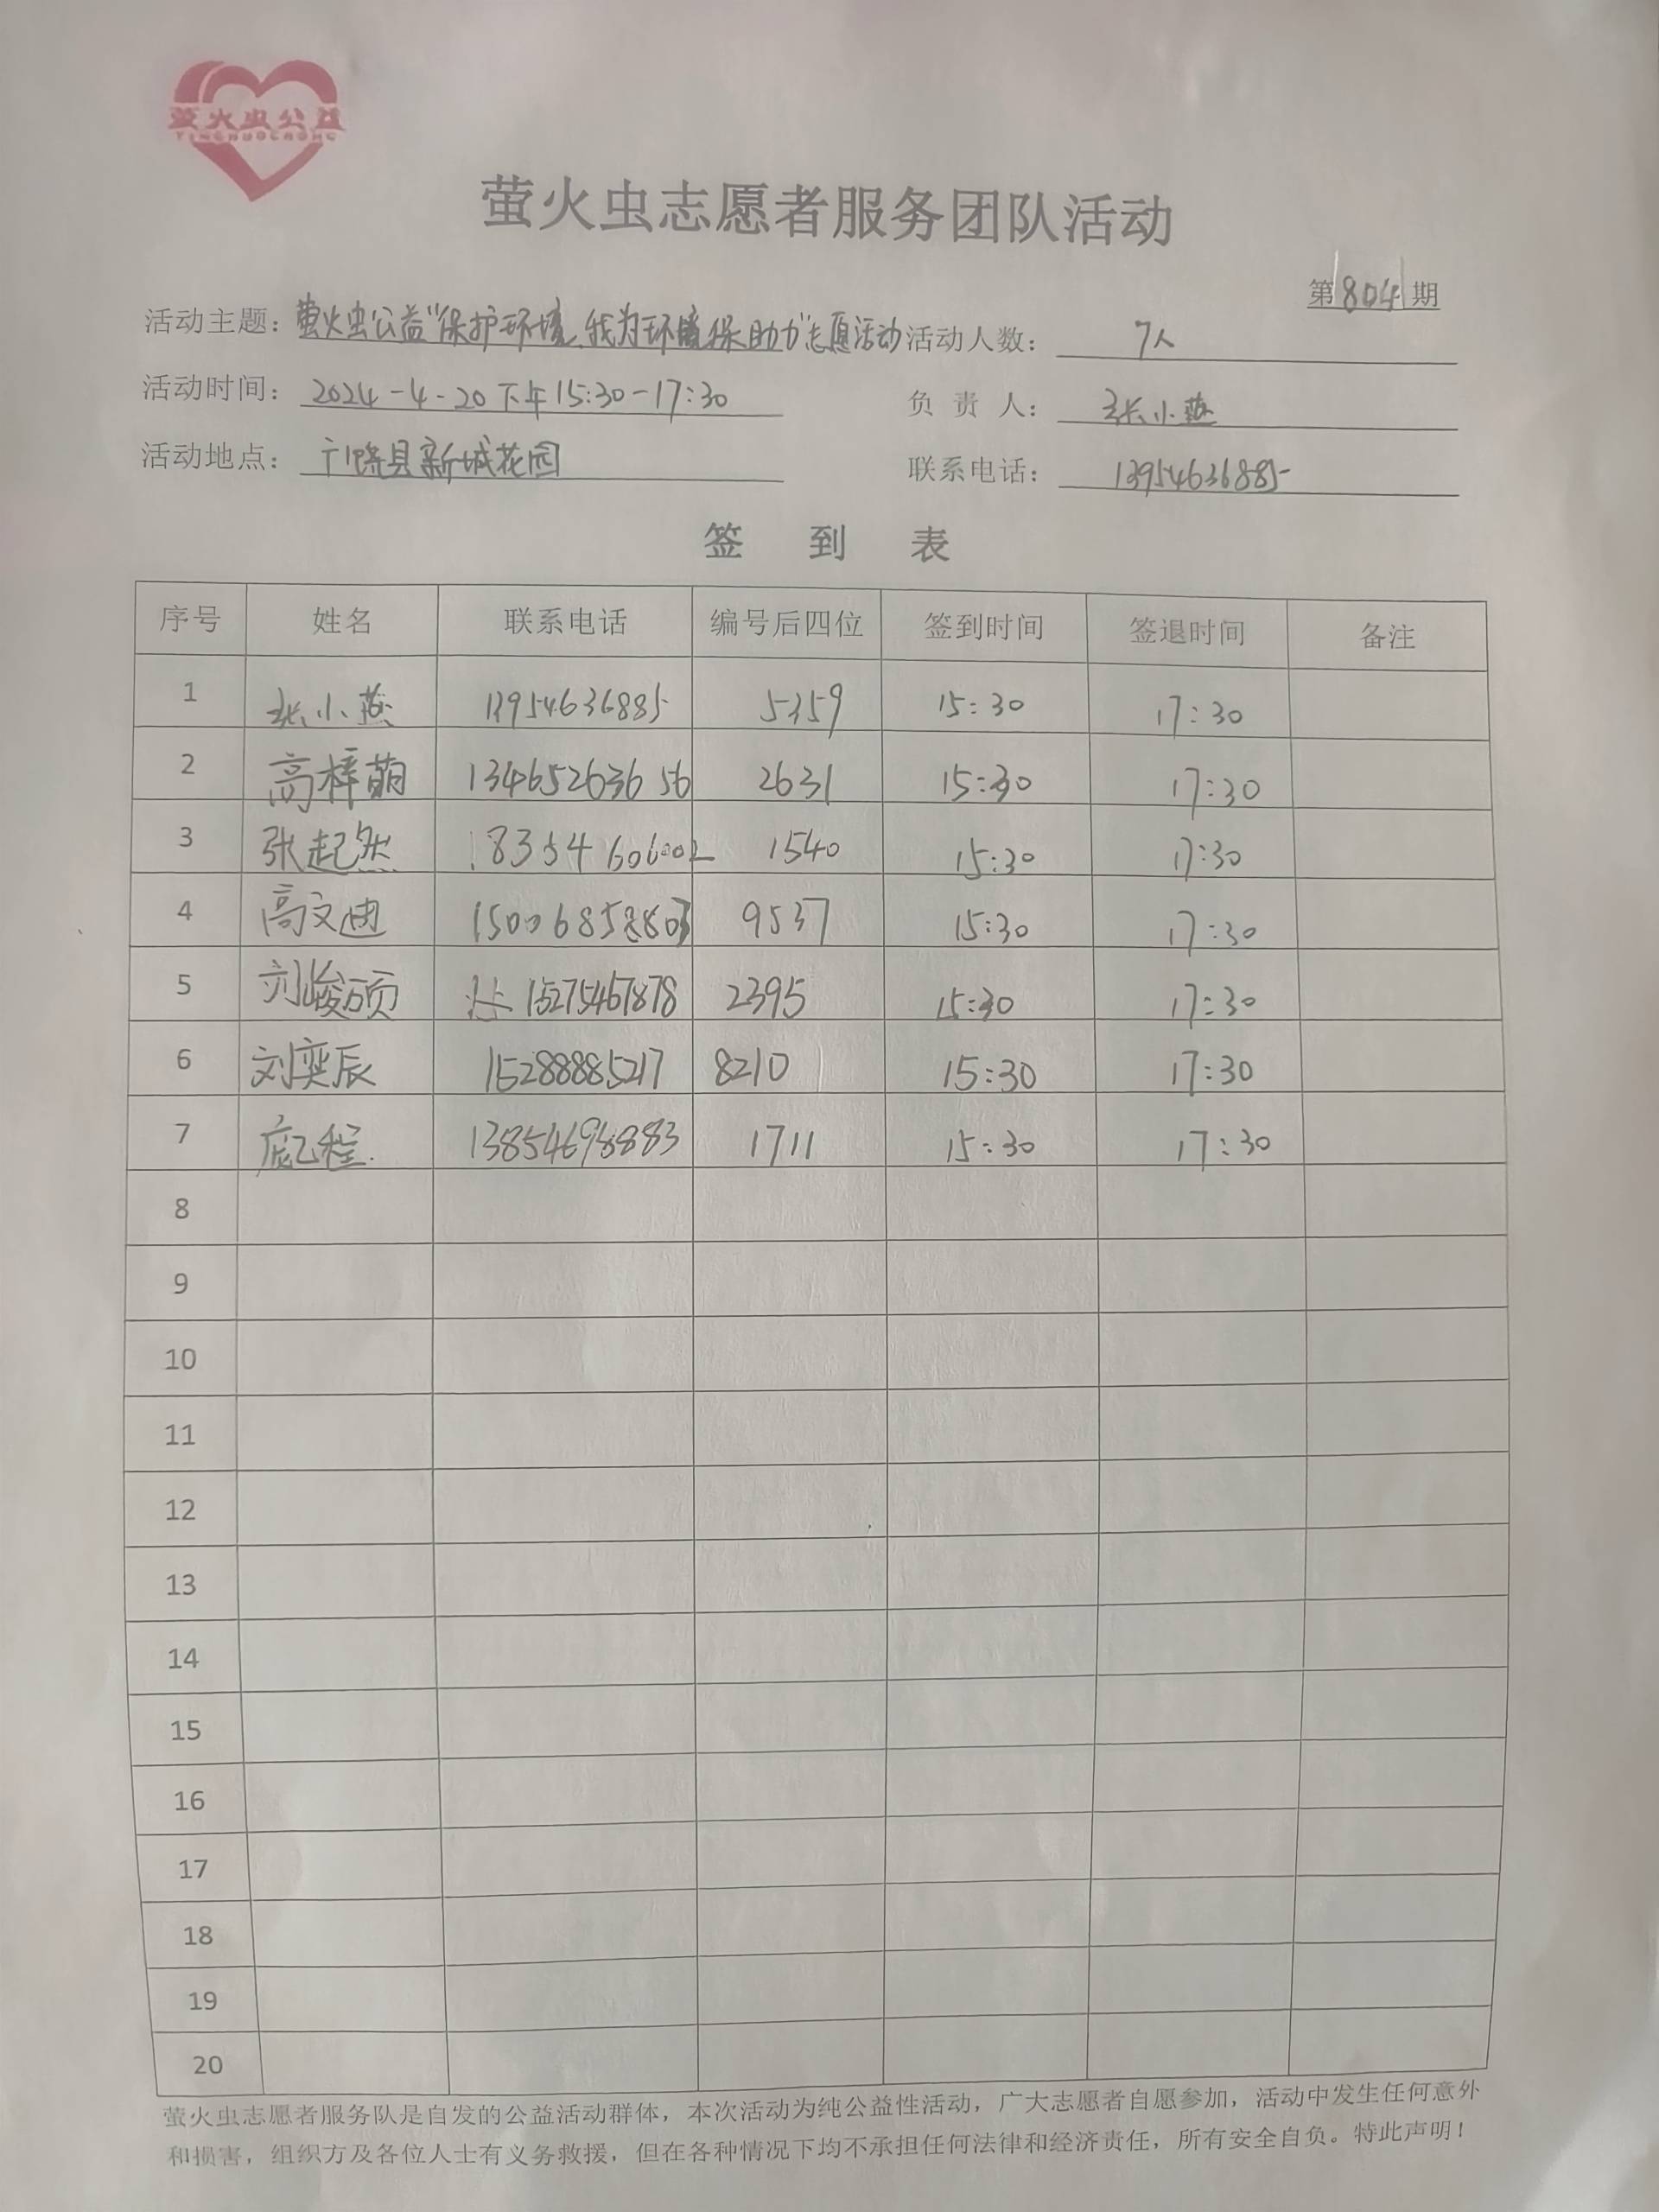 萤火虫公益
YINGHUOCHONG
萤火虫志愿者服务团队活动
第804期
活动主题：萤火虫公益“保护环境，我为环境保助力”志愿活动 活动人数：7人
活动时间：2024-4-20下午15:30-17:30 负责人：张小燕
活动地点：广饶县新城花园 联系电话：13954636885
签到表
序号 姓名 联系电话 编号后四位 签到时间 签退时间 备注
1 张小燕 13954636885 5359 15:30 17:30
2 高梓萌 13465263656 2631 15:30 17:30
3 张起然 18354606002 1540 15:30 17:30
4 高文迪 9537 15:30 17:30
5 刘峻硕 15275467878 2395 15:30 17:30
6 刘奕辰 15288885217 8210 15:30 17:30
7 13854698883 1711 15:30 17:30
8
9
10
11
12
13
14
15
16
17
18
19
20
萤火虫志愿者服务队是自发的公益活动群体，本次活动为纯公益性活动，广大志愿者自愿参加，活动中发生任何意外
和损害，组织方及各位人士有义务救援，但在各种情况下均不承担任何法律和经济责任，所有安全自负。特此声明！